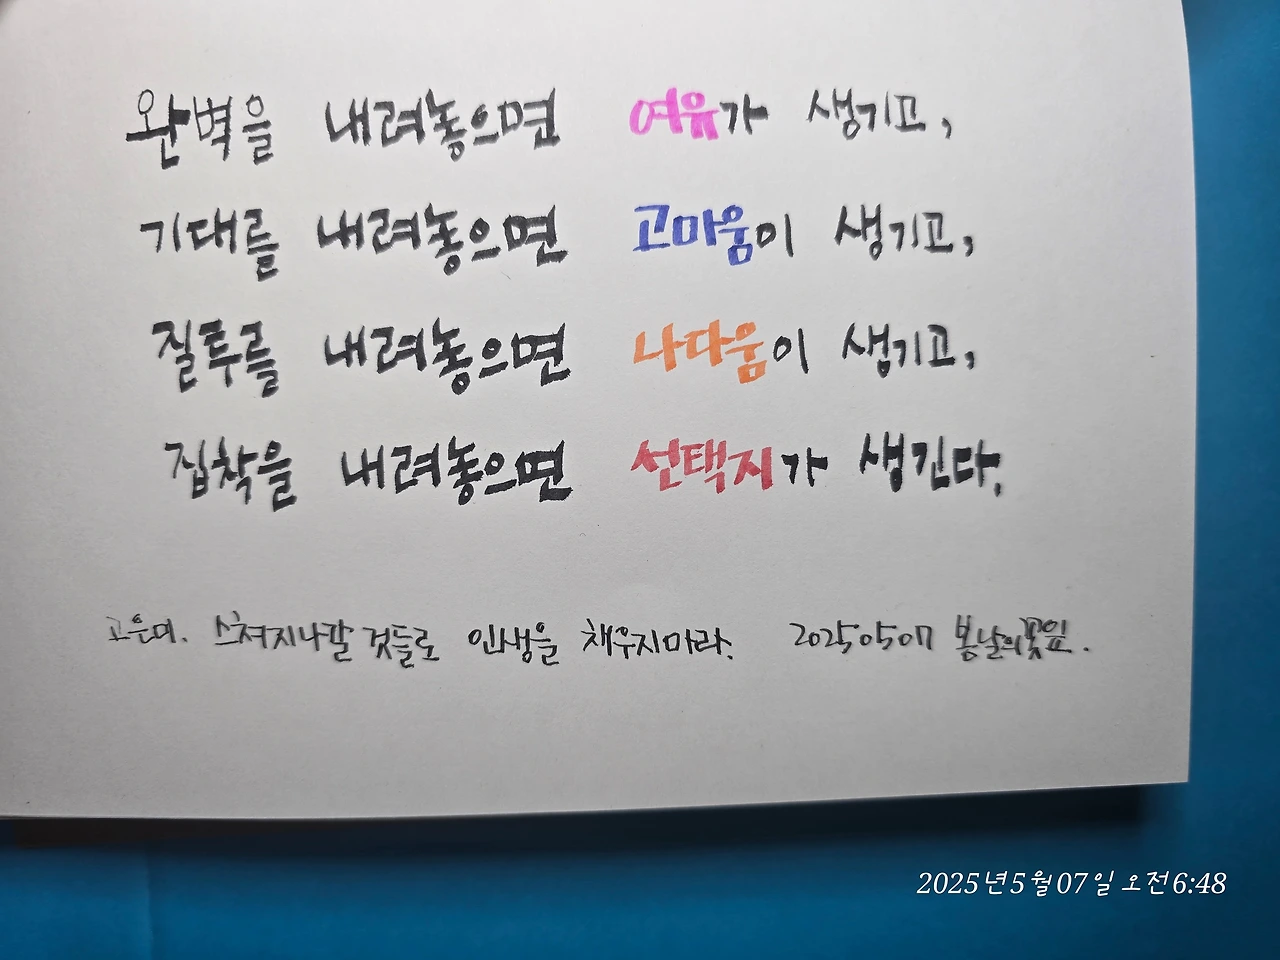 완벽을 내려놓으면 여유가 생기고,
기대를 내려놓으면 고마움이 생기고,
질투를 내려놓으면 나다움이 생기고,
집착을 내려놓으면 선택지가 생긴다.
고은미. 스쳐지나갈 것들로 인생을 채우지마라. 20250507 봄날의꽃잎.
2025년5월07일 오전6:48